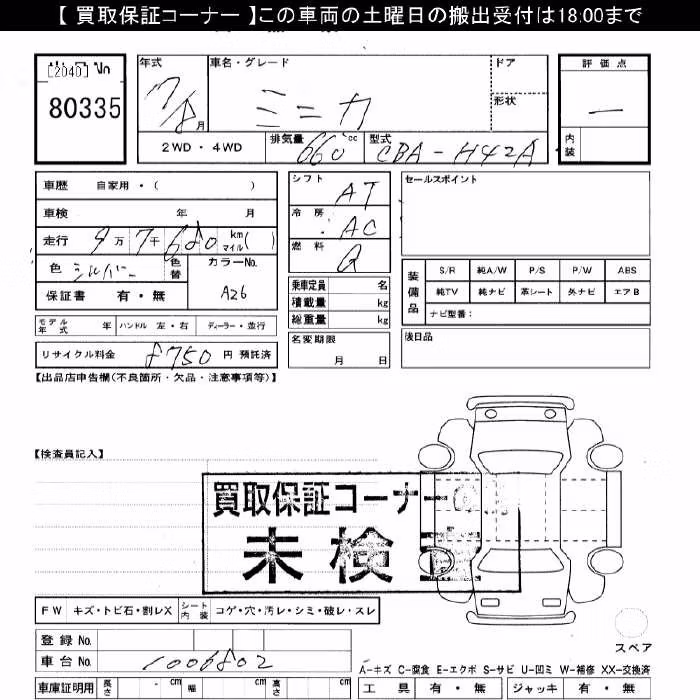 【 買取保証コーナー 】この車両の土曜日の搬出受付は18:00まで
[2040] No
80335
年式
7/8 月
車名・グレード
ミニカ
ドア
形状
評価点
内装
2WD ・ 4WD
排気量 660 cc
型式 CBA-H42A
車歴 自家用 ・ ( )
車検 年 月
走行 9万 7千 680 km マイル ( )
色 シルバー 色替 カラーNo. A26
保証書 有・無
モデル年式 年 ハンドル 左・右 ディーラー・並行
リサイクル料金 8750 円 預託済
シフト AT
冷房 AC
燃料 G
乗車定員 名
積載量 kg
総重量 kg
名変期限
月 日
セールスポイント
装備品
S/R 純A/W P/S P/W ABS
純TV 純ナビ 革シート 外ナビ エアB
ナビ型番：
後日品
【出品店申告欄(不良箇所・欠品・注意事項等)】
【検査員記入】
買取保証コーナー
未検
FW キズ・トビ石・割レX シート内装 コゲ・穴・汚レ・シミ・破レ・スレ
登録 No.
車台 No. 1006802
スペア
A-キズ C-腐食 E-エクボ S-サビ U-凹ミ W-補修 XX-交換済
車庫証明用 長さ cm 幅 cm 高さ cm
工具 有・無 ジャッキ 有・無